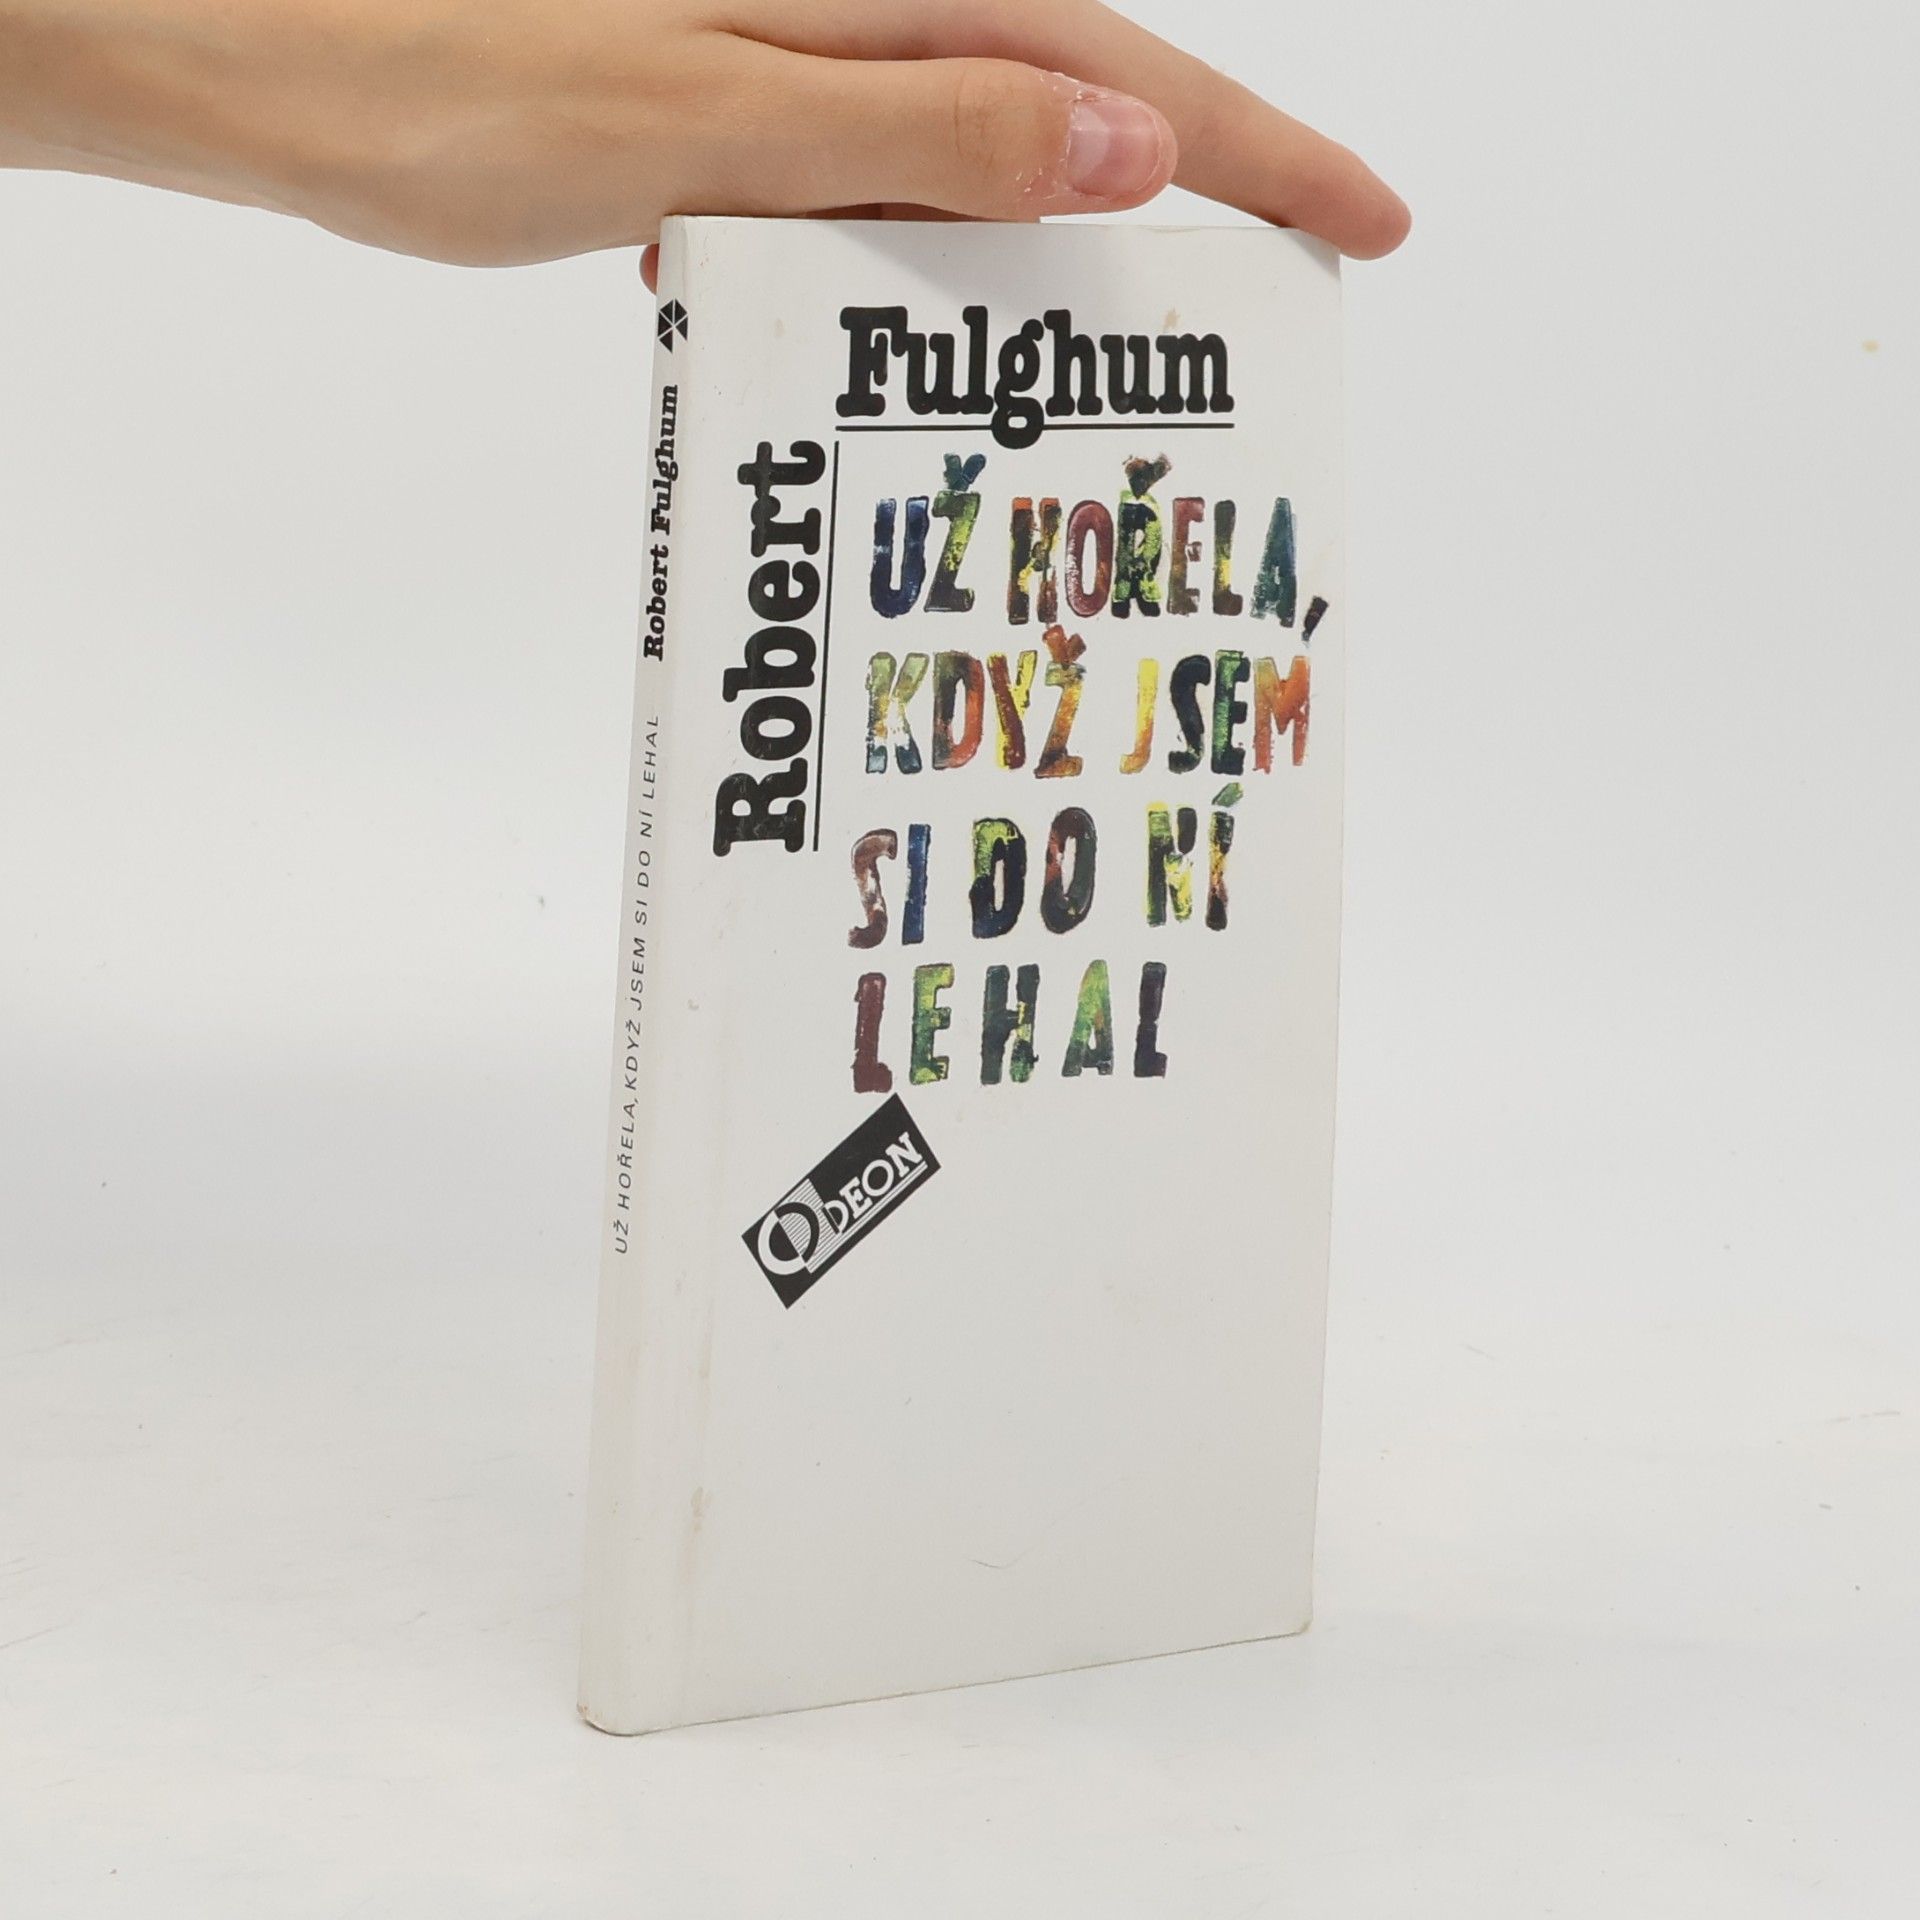 Robert Fulghum
UŽ HOŘELA,
KDYŽ JSEM
SI DO NÍ
LEHAL
ODEON
Robert Fulghum
UŽ HOŘELA, KDYŽ JSEM SI DO NÍ LEHAL